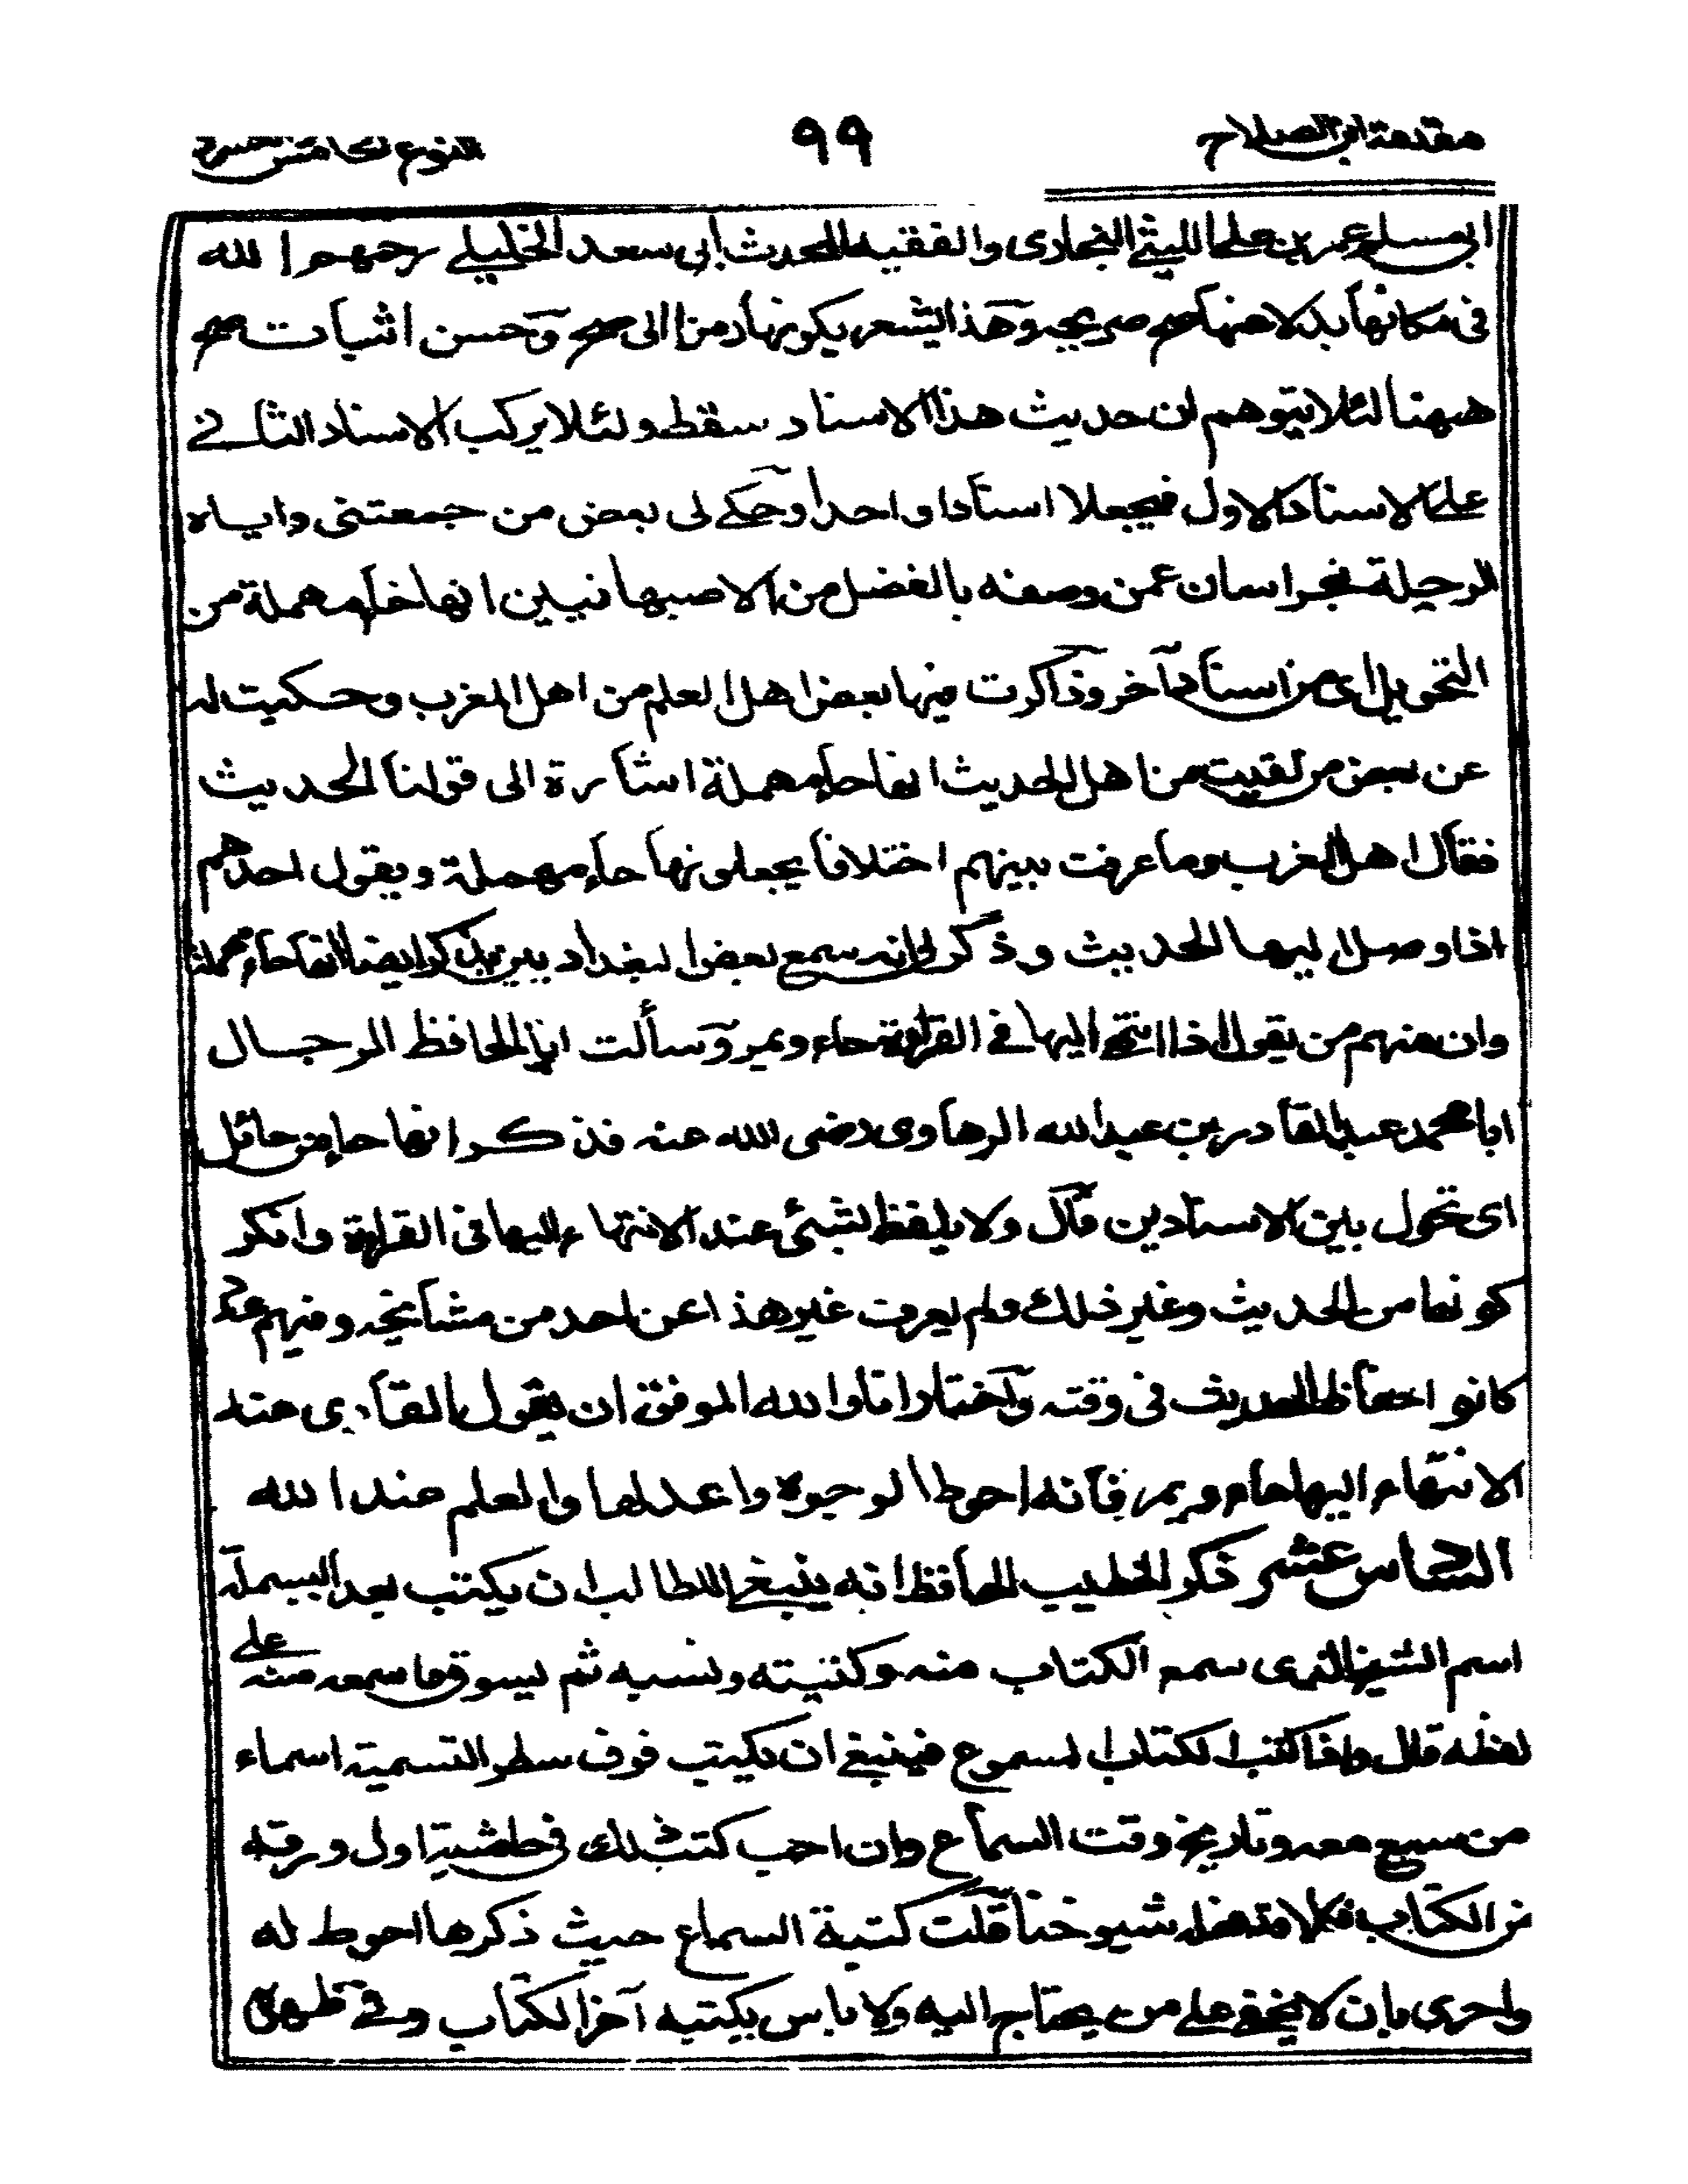 مقدمة ابن الصلاح
٩٩
النوع الخامس
ابى مسلم عمر بن على الليثى البخارى والفقيه المحدث ابى سعد الخليلے رحمهم الله
فى مكانها بدلا عنها صح صريحه وهذا يشعر بكونها رمزا الى صح وحسن اثبات صح
ههنا لئلا يتوهم ان حديث هذا الاسناد سقط ولئلا يركب الاسناد الثانے
على الاسناد الاول فيجعلا اسنادا واحدا وحكے لى بعض من جمعتنى واياه
الرحلة بخراسان عمن وصفه بالفضل من الاصبهانيين انها حاء مهملة من
التحويل اى من اسناد الى آخر وذاكرت فيها بعض اهل العلم من اهل المغرب وحكيت له
عن بعض من لقيت من اهل الحديث انها حاء مهملة اشارة الى قولنا الحديث
فقال اهل المغرب وما عرفت بينهم اختلافا يجعلونها حاء مهملة ويقول احدهم
اذا وصل اليها الحديث وذكر لى انه سمع بعض البغداديين يذكر ايضا انها حاء مهملة
وان منهم من يقول اذا انتهى اليها فى القراءة حاء ويمر وسألت انا الحافظ الرحال
ابا محمد عبد القادر بن عبد الله الرهاوى رضى الله عنه فذكر انها حاء من حائل
اى تحول بين الاسنادين قال ولا يلفظ بشئ عند الانتهاء اليها فى القراءة وانكر
كونها من الحديث وغير ذلك ولم يعرف غير هذا عن احد من مشايخه وفيهم عدد
كانوا حفاظ الحديث فى وقته واختار انا والله الموفق ان يقول القارى عند
الانتهاء اليها حاء ويمر فانه احوط الوجوه واعدلها والعلم عند الله
الخامس عشر ذكر الخطيب الحافظ انه ينبغى للطالب ان يكتب بعد البسملة
اسم الشيخ الذى سمع الكتاب منه وكنيته ونسبه ثم يسوق ما سمعه منه على
لفظه قال واذا كتب الكتاب المسموع فينبغے ان يكتب فوق سطر التسمية اسماء
من سمع معه وتاريخ وقت السماع وان احب كتب ذلك فى حاشية اول ورقة
من الكتاب فكلا قد فعله شيوخنا قلت كتبة السماع حيث ذكرها احوط له
واحرى بان لا يخفى على من يحتاج اليه ولا باس بكتبه آخر الكتاب وفے ظهره